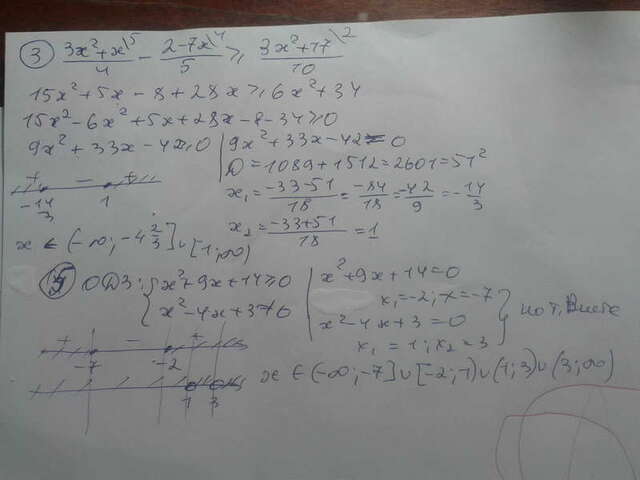 3) (3x²+x\5)/4 - (2-7x\4)/5 ≥ (3x²+17\2)/10
15x²+5x-8+28x ≥ 6x²+34
15x²-6x²+5x+28x-8-34≥0
9x²+33x-42≥0 | 9x²+33x-42=0
D=1089+1512=2601=51²
x₁=(-33-51)/18=-84/18=-42/9=-14/3
x₂=(-33+51)/18=1
+ - +
-14/3 1
x ∈ (-∞; -4 2/3] ∪ [1; ∞)
ОДЗ: { x²+9x+14≥0 | x²+9x+14=0
x₁=-2; x=-7
x²-4x+3≠0 | x²-4x+3=0
x₁=1; x₂=3
по т. Виета
+ - +
-7 -2
1 3
x ∈ (-∞; -7] ∪ [-2; 1) ∪ (1; 3) ∪ (3; ∞)